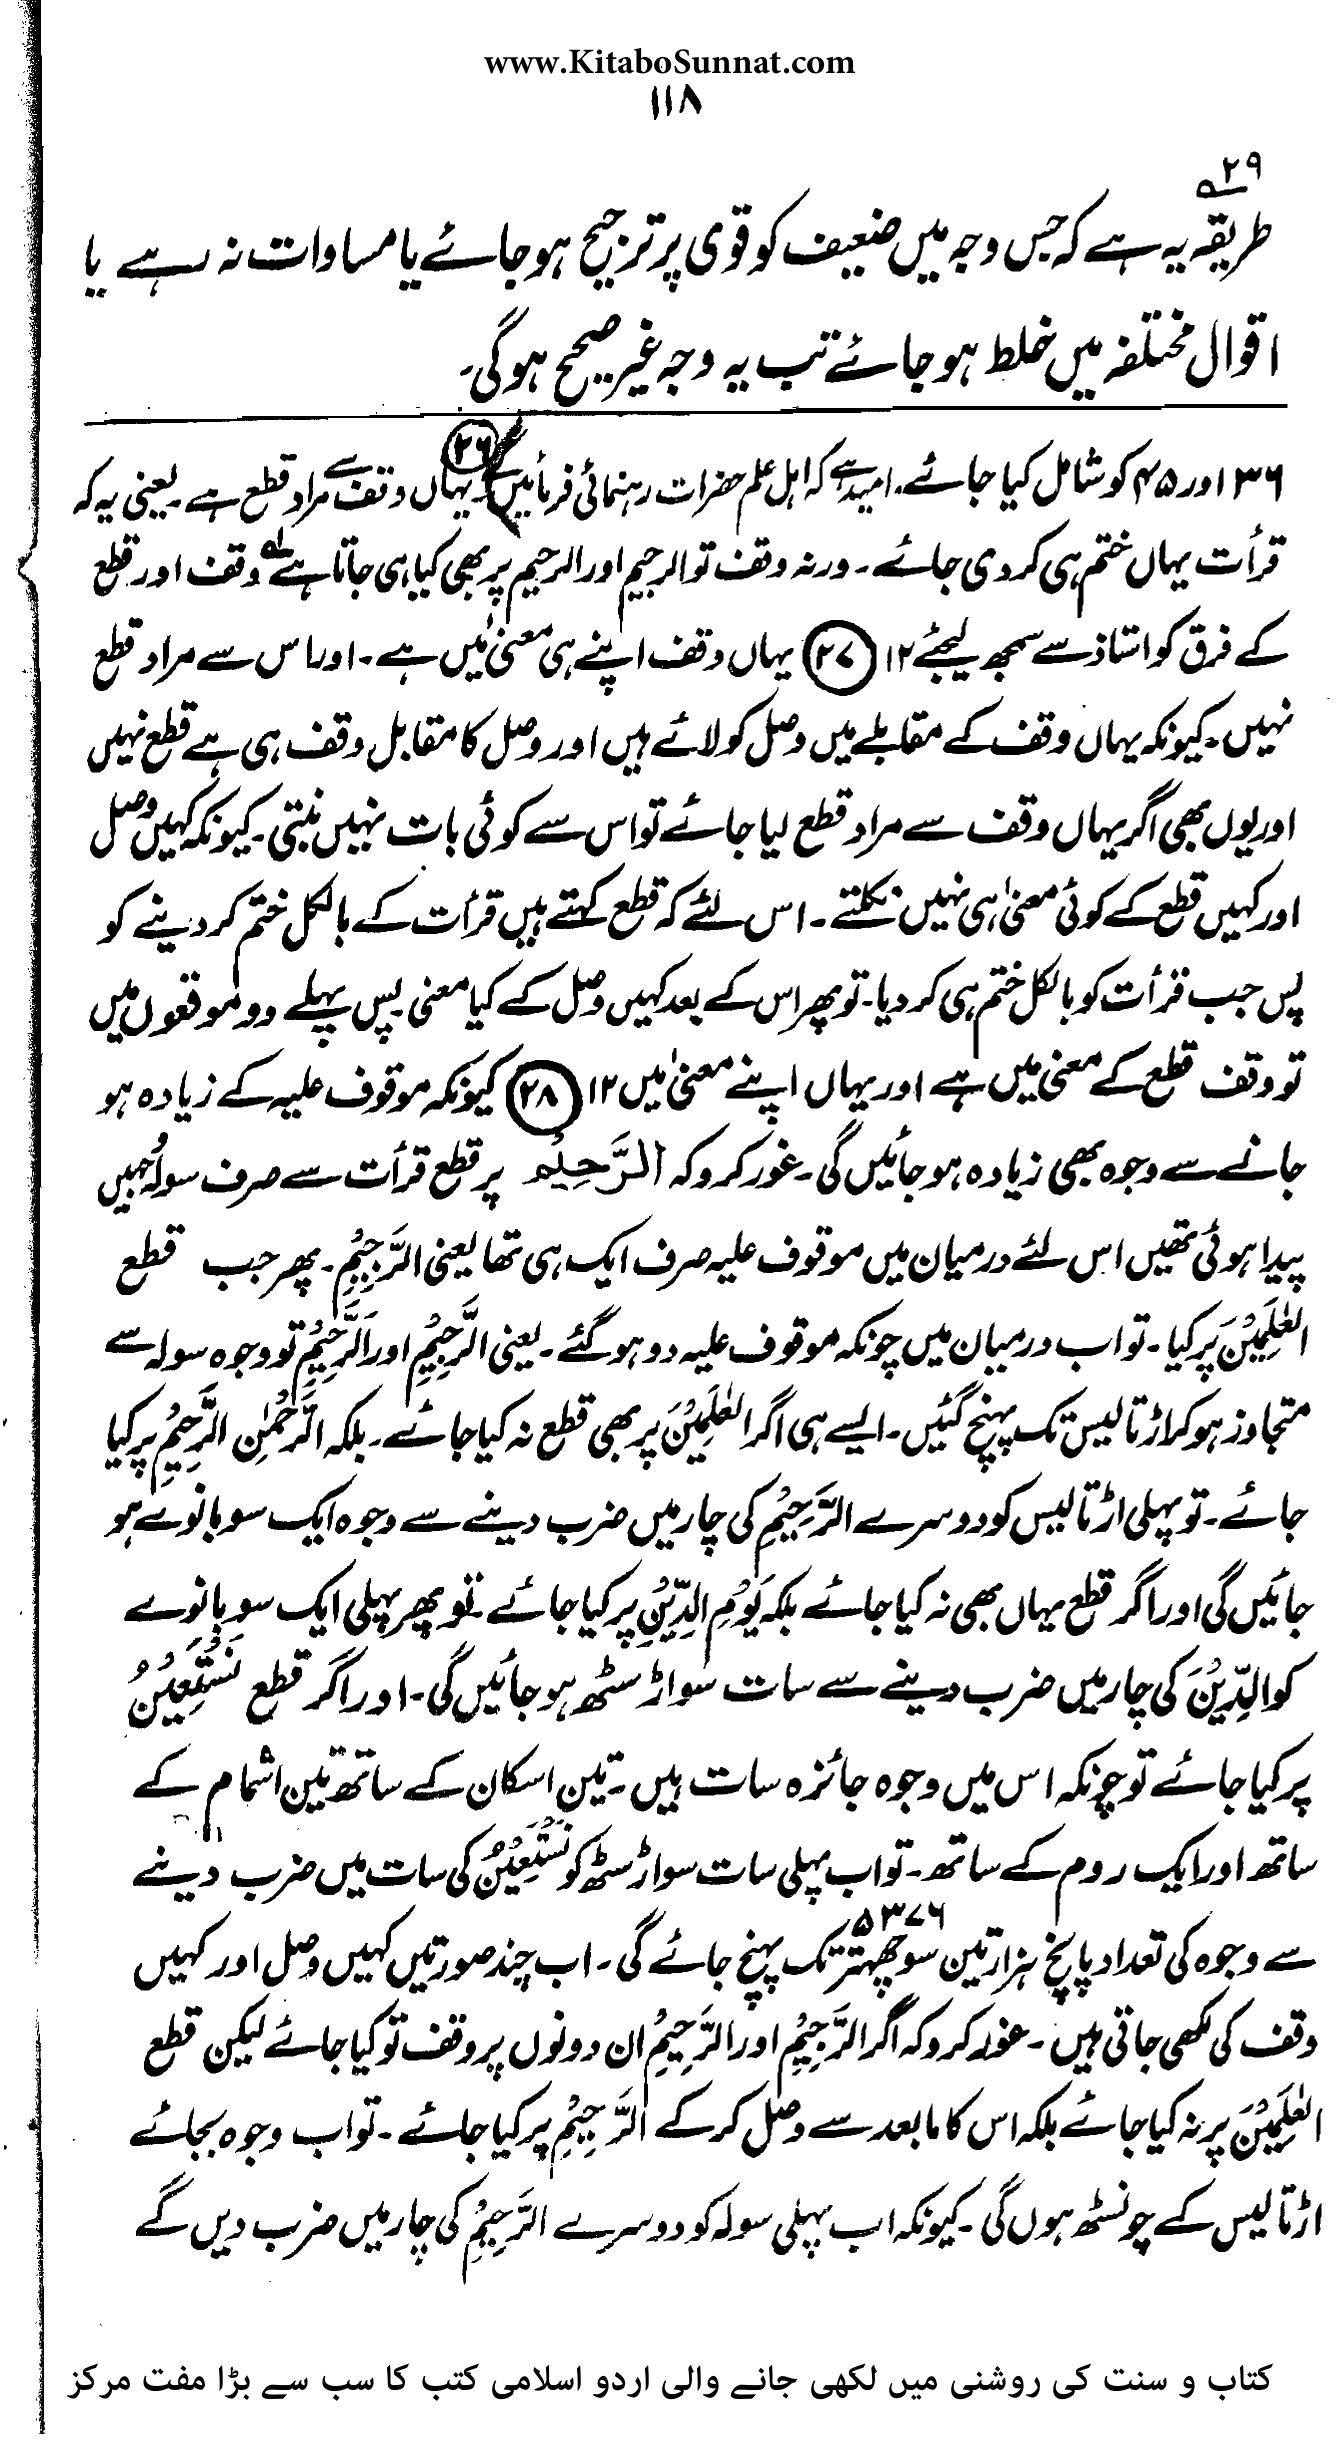 www.KitaboSunnat.com
۱۱۸
۲۹
طریقہ یہ ہے کہ جس وجہ میں ضعیف کو قوی پر ترجیح ہو جائے یا مساوات نہ رہے یا
اقوال مختلفہ میں خلط ہو جائے تب یہ وجہ غیر صحیح ہوگی۔
۳۶ اور ۴۵ کو شامل کیا جائے۔ امید ہے کہ اہل علم حضرات رہنمائی فرمائیں گے۔ (۲۶) یہاں وقف سے مراد قطع ہے۔ یعنی یہ کہ
قرأت یہاں ختم ہی کر دی جائے۔ ورنہ وقف تو الرجیم اور الرحیم پر بھی کیا ہی جاتا ہے وقف اور قطع
کے فرق کو استاذ سے سمجھ لیجئے ۱۲ (۲۷) یہاں وقف اپنے ہی معنیٰ میں ہے۔ اور اس سے مراد قطع
نہیں۔ کیونکہ یہاں وقف کے مقابلے میں وصل کو لائے ہیں اور وصل کا مقابل وقف ہی ہے قطع نہیں
اور یوں بھی اگر یہاں وقف سے مراد قطع لیا جائے تو اس سے کوئی بات نہیں بنتی۔ کیونکہ کہیں وصل
اور کہیں قطع کے کوئی معنیٰ ہی نہیں نکلتے۔ اس لئے کہ قطع کہتے ہیں قرأت کے بالکل ختم کر دینے کو
پس جب قرأت کو بالکل ختم ہی کر دیا۔ تو پھر اس کے بعد کہیں وصل کے کیا معنی۔ پس پہلے دو موقعوں میں
تو وقف قطع کے معنی میں ہے اور یہاں اپنے معنیٰ میں ۱۲ (۲۸) کیونکہ موقوف علیہ کے زیادہ ہو
جانے سے وجوہ بھی زیادہ ہو جائیں گی۔ غور کرو کہ الرَّحِیْم پر قطع قرأت سے صرف سولہ وجہیں
پیدا ہوئی تھیں اس لئے درمیان میں موقوف علیہ صرف ایک ہی تھا یعنی الرَّجِیْمِ۔ پھر جب قطع
العٰلَمِیْنَ پر کیا۔ تو اب درمیان میں چونکہ موقوف علیہ دو ہو گئے۔ یعنی الرَّجِیْمِ اور اَلرَّحِیْمِ تو وجوہ سولہ سے
متجاوز ہو کر اڑتالیس تک پہنچ گئیں۔ ایسے ہی اگر العٰلَمِیْنَ پر بھی قطع نہ کیا جائے۔ بلکہ الرَّحْمٰنِ الرَّحِیْمِ پر کیا
جائے۔ تو پہلی اڑتالیس کو دوسرے الرَّحِیْمِ کی چار میں ضرب دینے سے وجوہ ایک سو بانوے ہو
جائیں گی اور اگر قطع یہاں بھی نہ کیا جائے بلکہ یَوْمِ الدِّیْنِ پر کیا جائے۔ تو پھر پہلی ایک سو بانوے
کو الدِّیْنَ کی چار میں ضرب دینے سے سات سو اڑسٹھ ہو جائیں گی۔ اور اگر قطع نَسْتَعِیْنُ
پر کیا جائے تو چونکہ اس میں وجوہ جائزہ سات ہیں۔ تین اسکان کے ساتھ تین اشمام کے
ساتھ اور ایک روم کے ساتھ۔ تو اب پہلی سات سو اڑسٹھ کو نَسْتَعِیْنُ کی سات میں ضرب دینے
۵۳۷۶
سے وجوہ کی تعداد پانچ ہزار تین سو چھہتر تک پہنچ جائے گی۔ اب چند صورتیں کہیں وصل اور کہیں
وقف کی لکھی جاتی ہیں۔ غور کرو کہ اگر الرَّجِیْمِ اور الرَّحِیْمِ ان دونوں پر وقف تو کیا جائے لیکن قطع
العٰلَمِیْنَ پر نہ کیا جائے بلکہ اس کا مابعد سے وصل کر کے الرَّحِیْمِ پر کیا جائے۔ تو اب وجوہ بجائے
اڑتالیس کے چونسٹھ ہوں گی۔ کیونکہ اب پہلی سولہ کو دوسرے الرَّحِیْمِ کی چار میں ضرب دیں گے
کتاب و سنت کی روشنی میں لکھی جانے والی اردو اسلامی کتب کا سب سے بڑا مفت مرکز